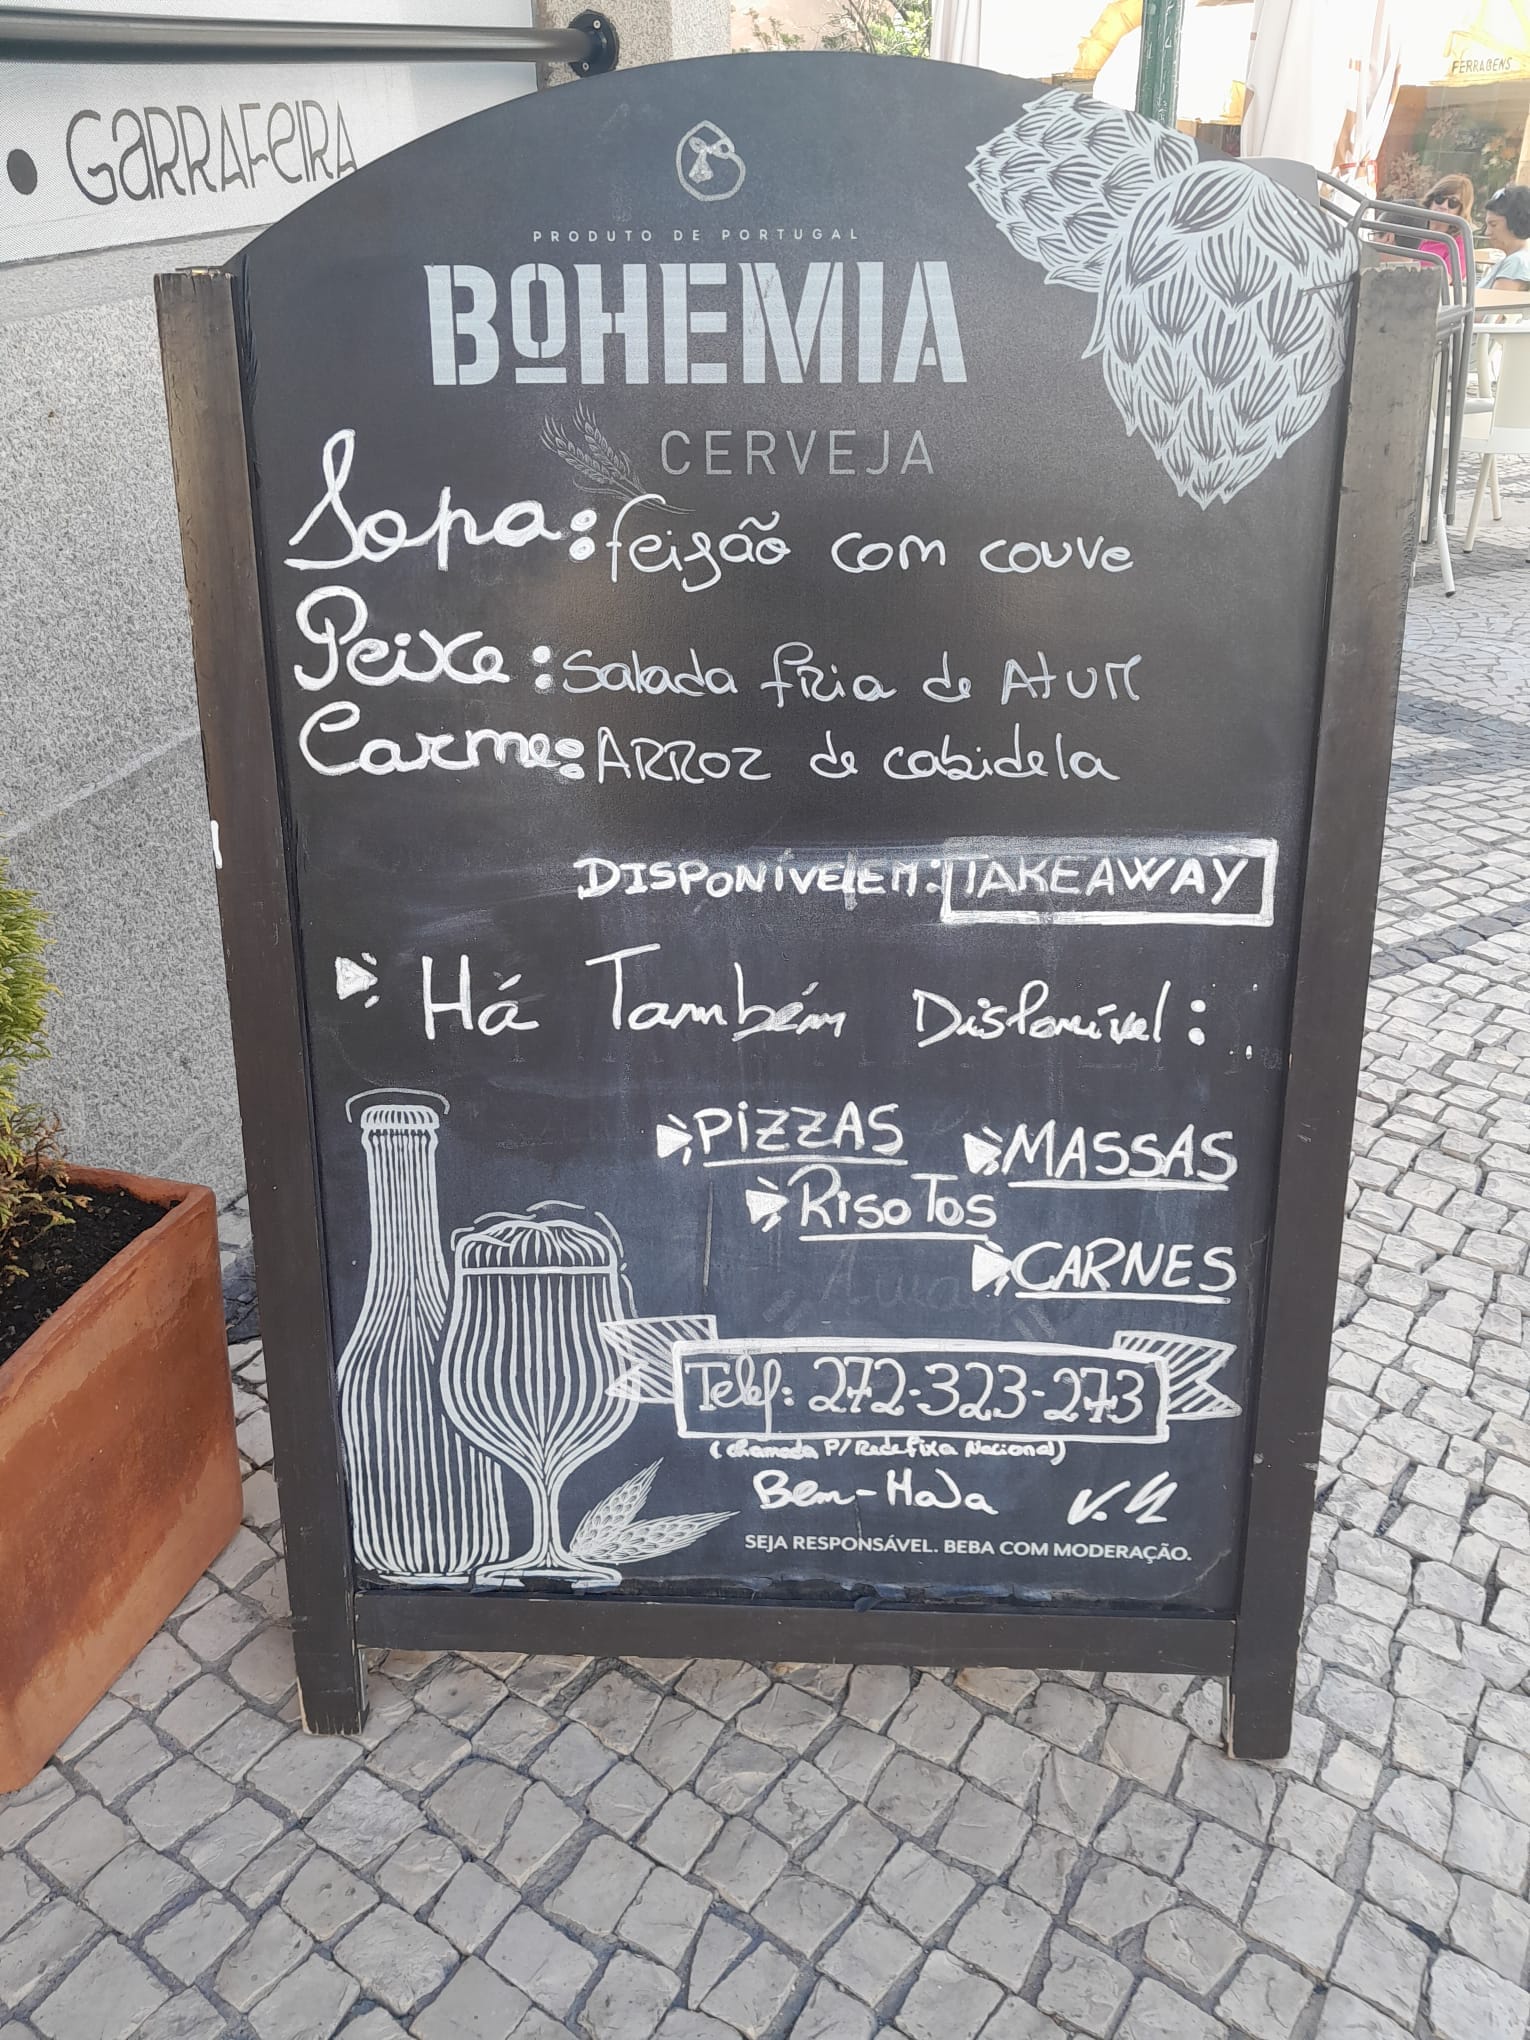 GARRAFEIRA
FERRAGENS
PRODUTO DE PORTUGAL
BOHEMIA
CERVEJA
Sopa: feijão com couve
Peixe: Salada fria de Atum
Carne: ARROZ de cabidela
DISPONÍVEL EM: TAKEAWAY
Há Também Disponível:
PIZZAS MASSAS
RISOTOS
CARNES
Telef: 272-323-273
(chamada P/ Rede fixa Nacional)
Bem-Haja
SEJA RESPONSÁVEL. BEBA COM MODERAÇÃO.